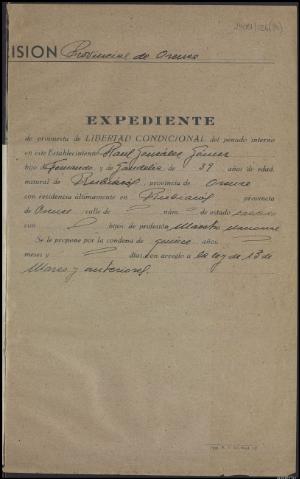 CISION Provincial de Orense
EXPEDIENTE
de propuesta de LIBERTAD CONDICIONAL del penado interno
en este Establecimiento Raul González Gómez
hijo de Fernando y de de 39 años de edad,
natural de provincia de Orense
con residencia últimamente en provincia
de Orense calle de núm. de estado casado
con hijos de profesión Maestro nacional
Se le propone por la condena de quince años,
meses y días con arreglo a la ley de 13 de
Marzo y anteriores.